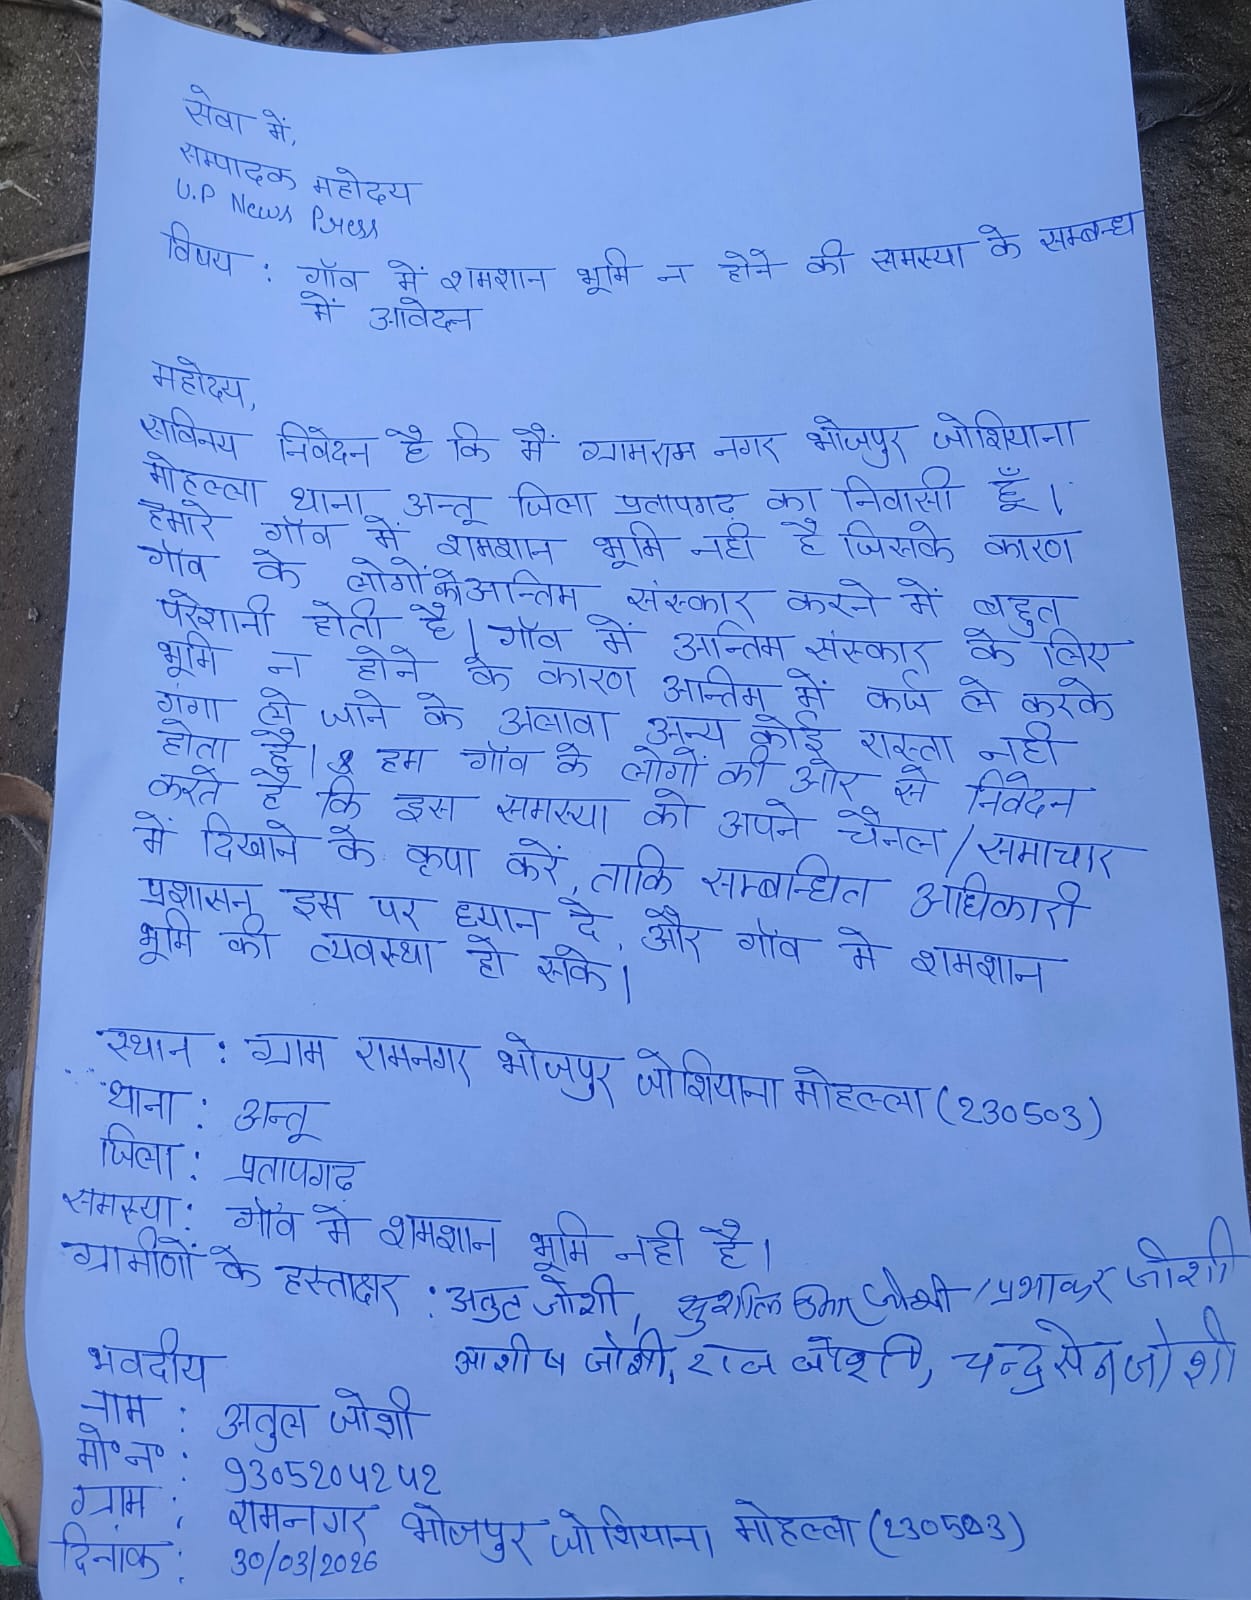 सेवा में,
सम्पादक महोदय
U.P News Press
विषय : गाँव में शमशान भूमि न होने की समस्या के सम्बन्ध
में आवेदन
महोदय,
सविनय निवेदन है कि मैं ग्रामराम नगर भोजपुर जोशियाना
मोहल्ला थाना अन्तू जिला प्रतापगढ़ का निवासी हूँ।
हमारे गाँव में शमशान भूमि नही है जिसके कारण
गाँव के लोगों को अन्तिम संस्कार करने में बहुत
परेशानी होती है। गाँव में अन्तिम संस्कार के लिए
भूमि न होने के कारण अन्तिम में कर्ज ले करके
गंगा ले जाने के अलावा अन्य कोई रास्ता नही
होता है। हम गाँव के लोगों की ओर से निवेदन
करते है कि इस समस्या को अपने चैनल/समाचार
में दिखाने के कृपा करें, ताकि सम्बान्धित अधिकारी
प्रशासन इस पर ध्यान दे, और गाँव मे शमशान
भूमि की व्यवस्था हो सके।
स्थान : ग्राम रामनगर भोजपुर जोशियाना मोहल्ला (230503)
थाना : अन्तू
जिला : प्रतापगढ़
समस्या : गाँव में शमशान भूमि नही है।
ग्रामीणों के हस्ताक्षर : अतुल जोशी, सुशील कुमार जोशी / प्रभाकर जोशी
आशीष जोशी, राज जोशी, चन्द्रसेन जोशी
भवदीय
नाम : अतुल जोशी
मो०न० : 9305204242
ग्राम : रामनगर भोजपुर जोशियाना मोहल्ला (230503)
दिनांक : 30/03/2026